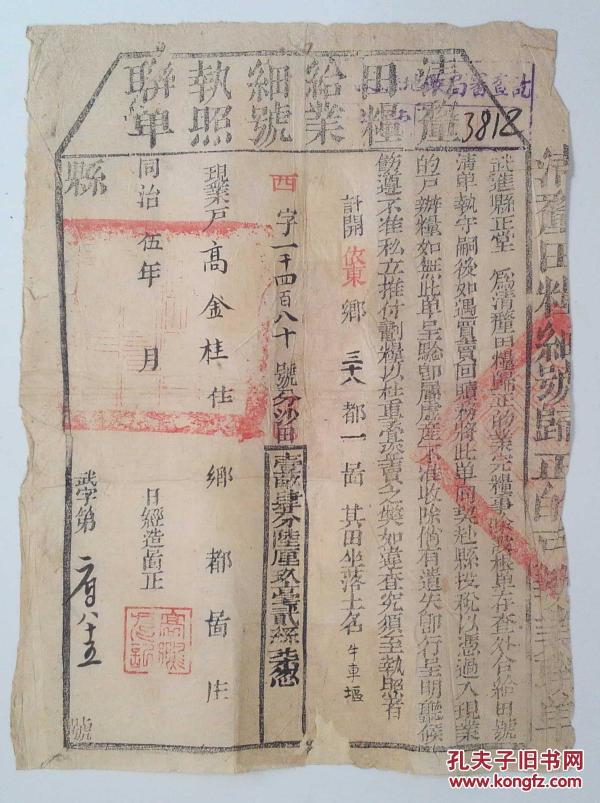 清釐田糧給業細號執照聯單
3812
武進縣正堂 為清釐田糧歸正的業完糧事
清单執守嗣後如遇買賣回贖務將此单同契赴縣投稅以憑過入現業
的戶辦糧如無此单呈驗卽屬虛產不准收除倘有遺失卽行呈明聽候
飭遵不准私立推付劃糧以杜重叠盜賣之獘如違查究須至執照者
計開 依東 鄉 三十八 都 一 啚 其田坐落土名 牛車堰
西 字 一千四百八十 號 沙田 壹畝肆分陸厘玖毫貳絲
現業戶 高金桂 住 鄉 都 啚 庄
同治 伍年 月 日 經造啚正
縣
武字第 八十五 號
清釐田糧細號歸正的戶
孔夫子旧书网
www.kongfz.com